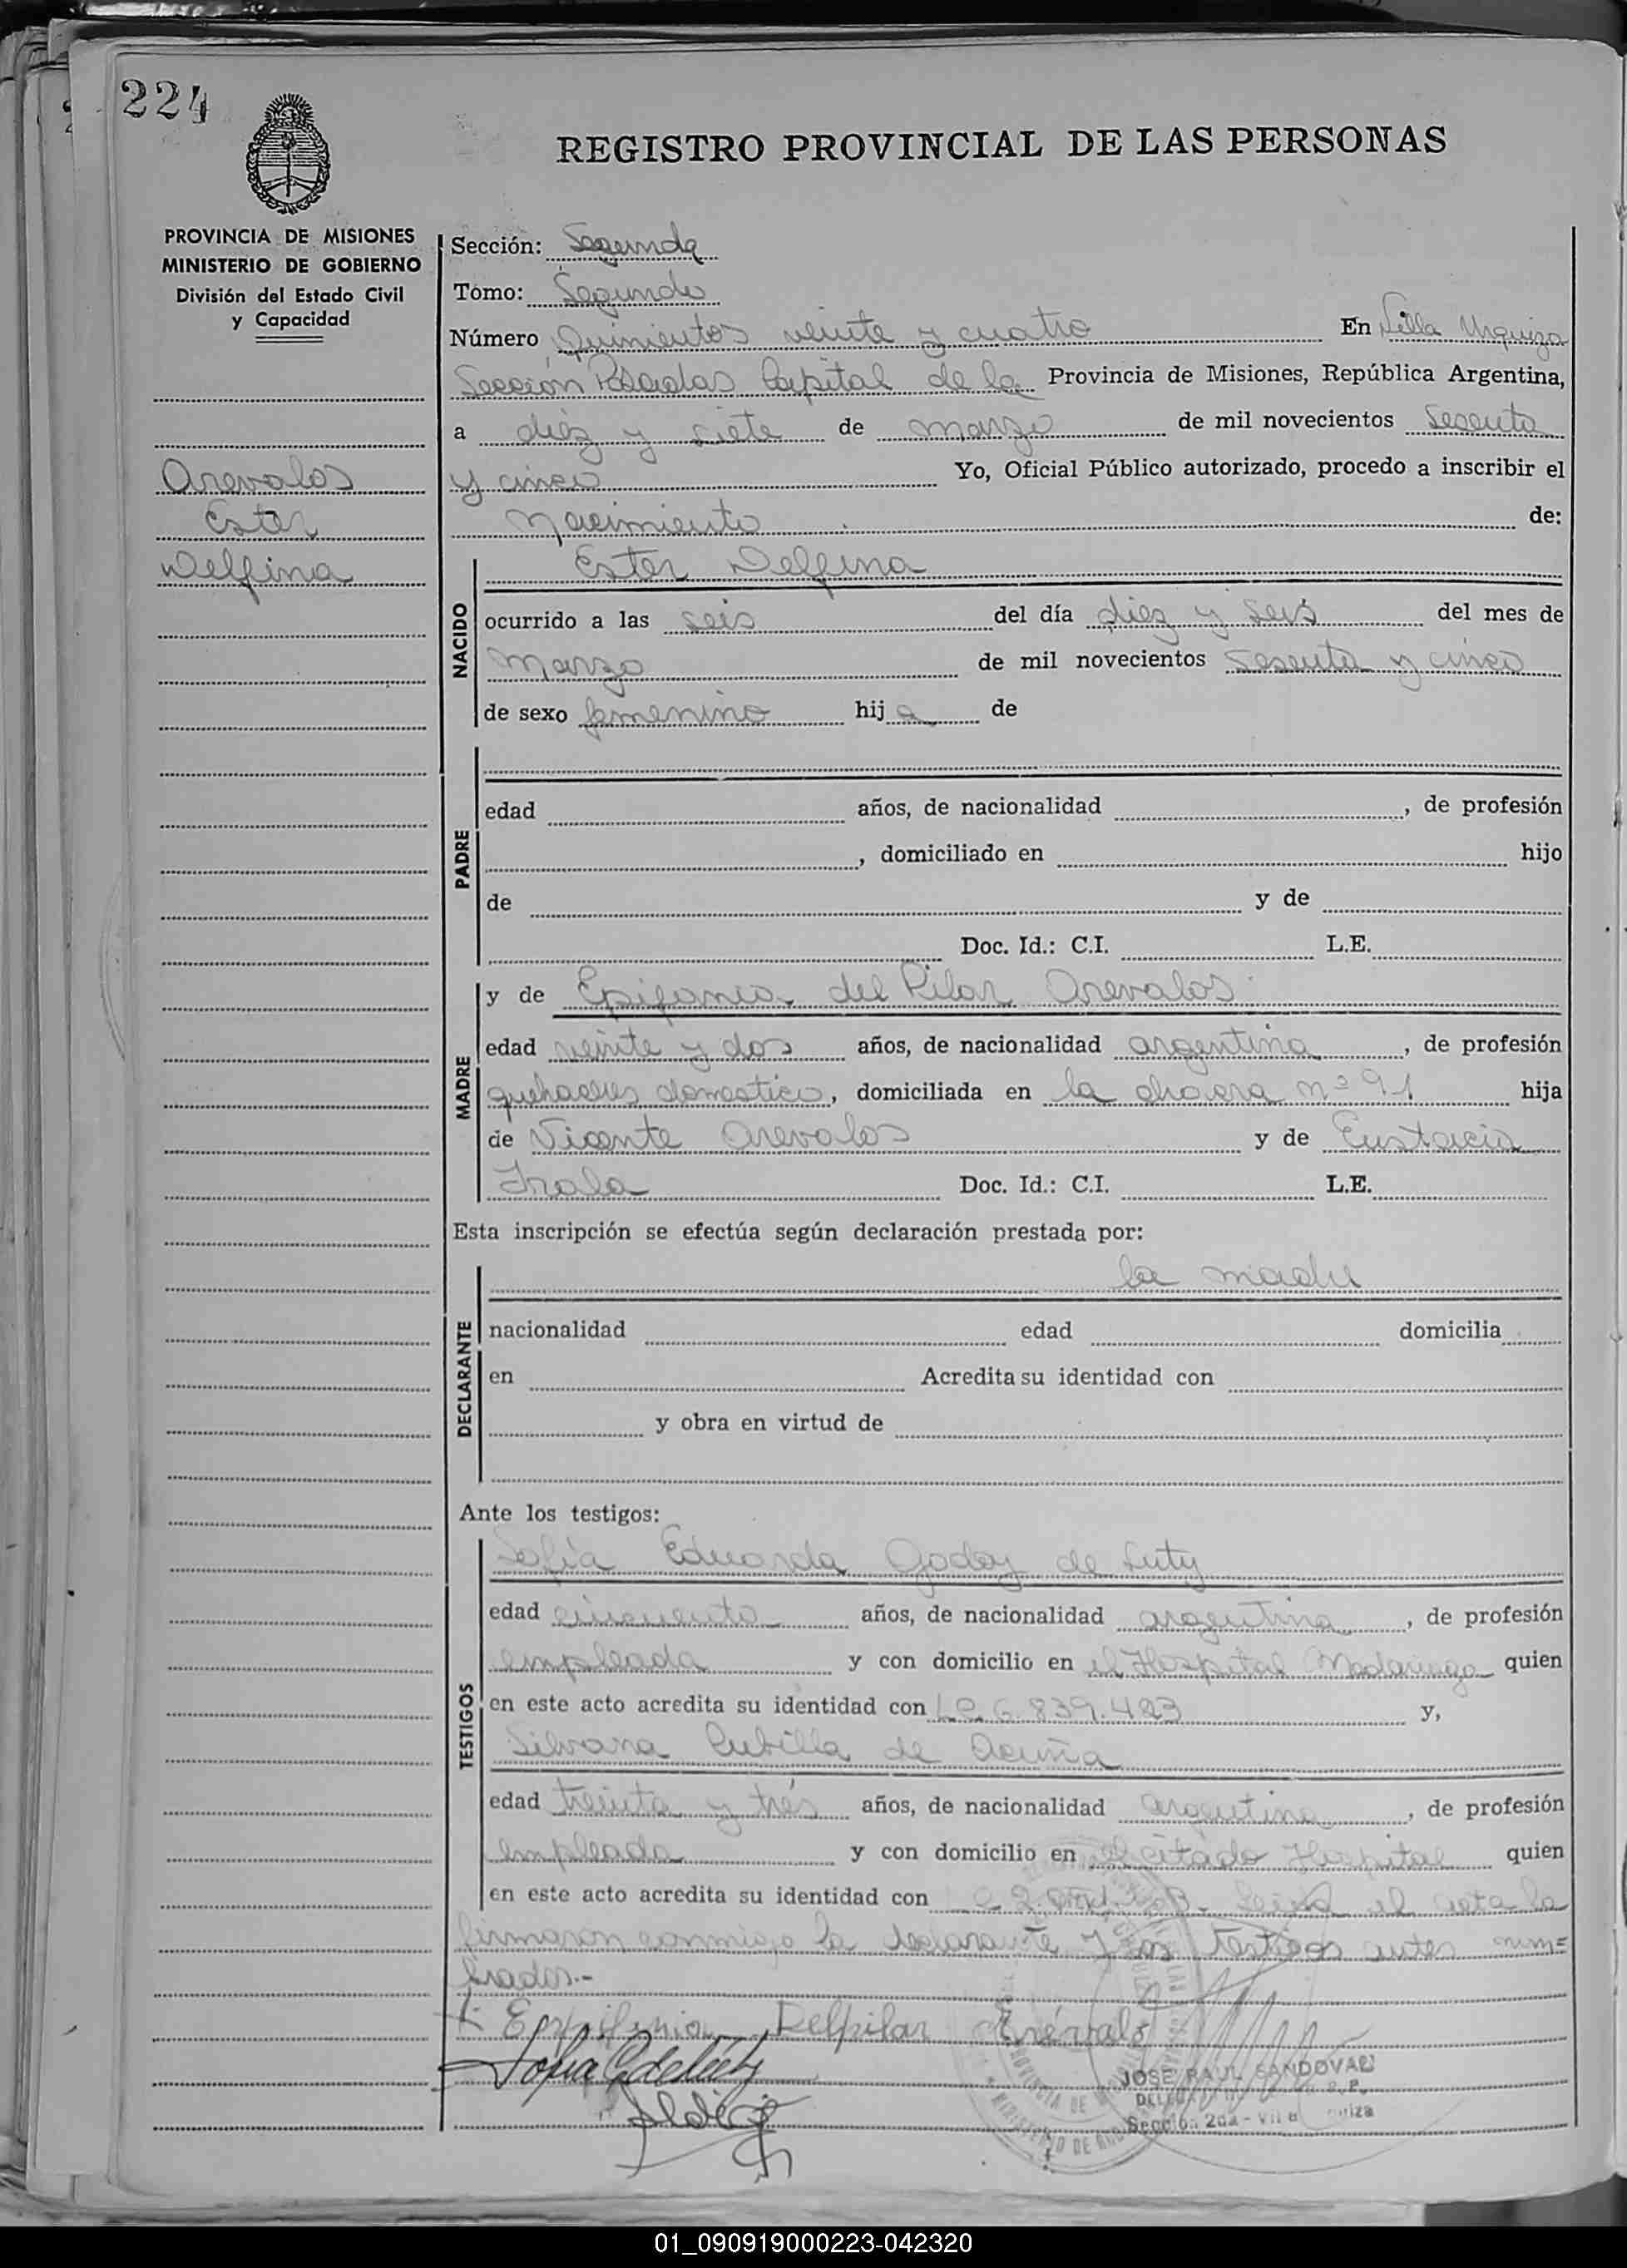 224
REGISTRO PROVINCIAL DE LAS PERSONAS
PROVINCIA DE MISIONES
MINISTERIO DE GOBIERNO
División del Estado Civil
y Capacidad
Arevalos
Ester
Delfina
Sección: Segunda
Tomo: Segundo
Número Quinientos veinte y cuatro En Villa Urquiza
Sección Posadas Capital de la Provincia de Misiones, República Argentina,
a diez y siete de marzo de mil novecientos sesenta
y cinco Yo, Oficial Público autorizado, procedo a inscribir el
Nacimiento de:
NACIDO
Ester Delfina
ocurrido a las seis del día diez y seis del mes de
marzo de mil novecientos sesenta y cinco
de sexo femenino hija de
PADRE
edad años, de nacionalidad , de profesión
, domiciliado en hijo
de y de
Doc. Id.: C.I. L.E.
MADRE
y de Epifania del Pilar Arevalos
edad veinte y dos años, de nacionalidad argentina, de profesión
quehaceres domestico, domiciliada en la chacra nº 91 hija
de Vicente Arevalos y de Eustacia
Irala Doc. Id.: C.I. L.E.
Esta inscripción se efectúa según declaración prestada por:
DECLARANTE
la madre
nacionalidad edad domicilia
en Acredita su identidad con
y obra en virtud de
Ante los testigos:
TESTIGOS
Sofia Eduarda Godoy de Luty
edad cincuenta años, de nacionalidad argentina, de profesión
empleada y con domicilio en el Hospital Madariaga quien
en este acto acredita su identidad con L.C. 6.839.483 y,
Silvana Cubilla de Acuña
edad treinta y tres años, de nacionalidad argentina, de profesión
empleada y con domicilio en el citado Hospital quien
en este acto acredita su identidad con el acta la
firmaron conmigo la declarante y los testigos antes nom=
brados.-
Epifania Delpilar Arévalo
JOSE RAUL SANDOVAL
Sección 2da - Villa
01_090919000223-042320